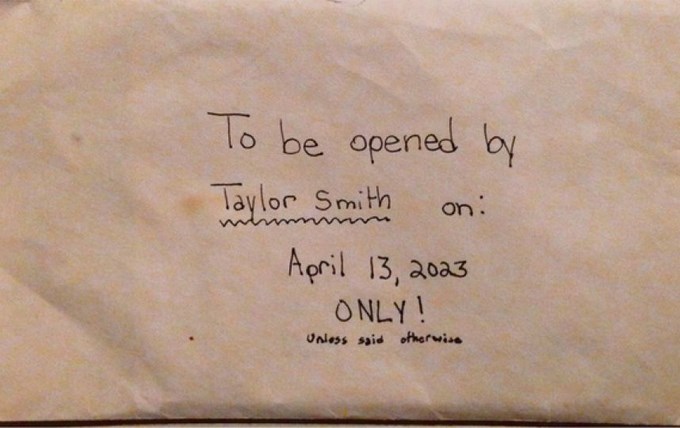 To be opened by
Taylor Smith on:
April 13, 2023
ONLY!
Unless said otherwise